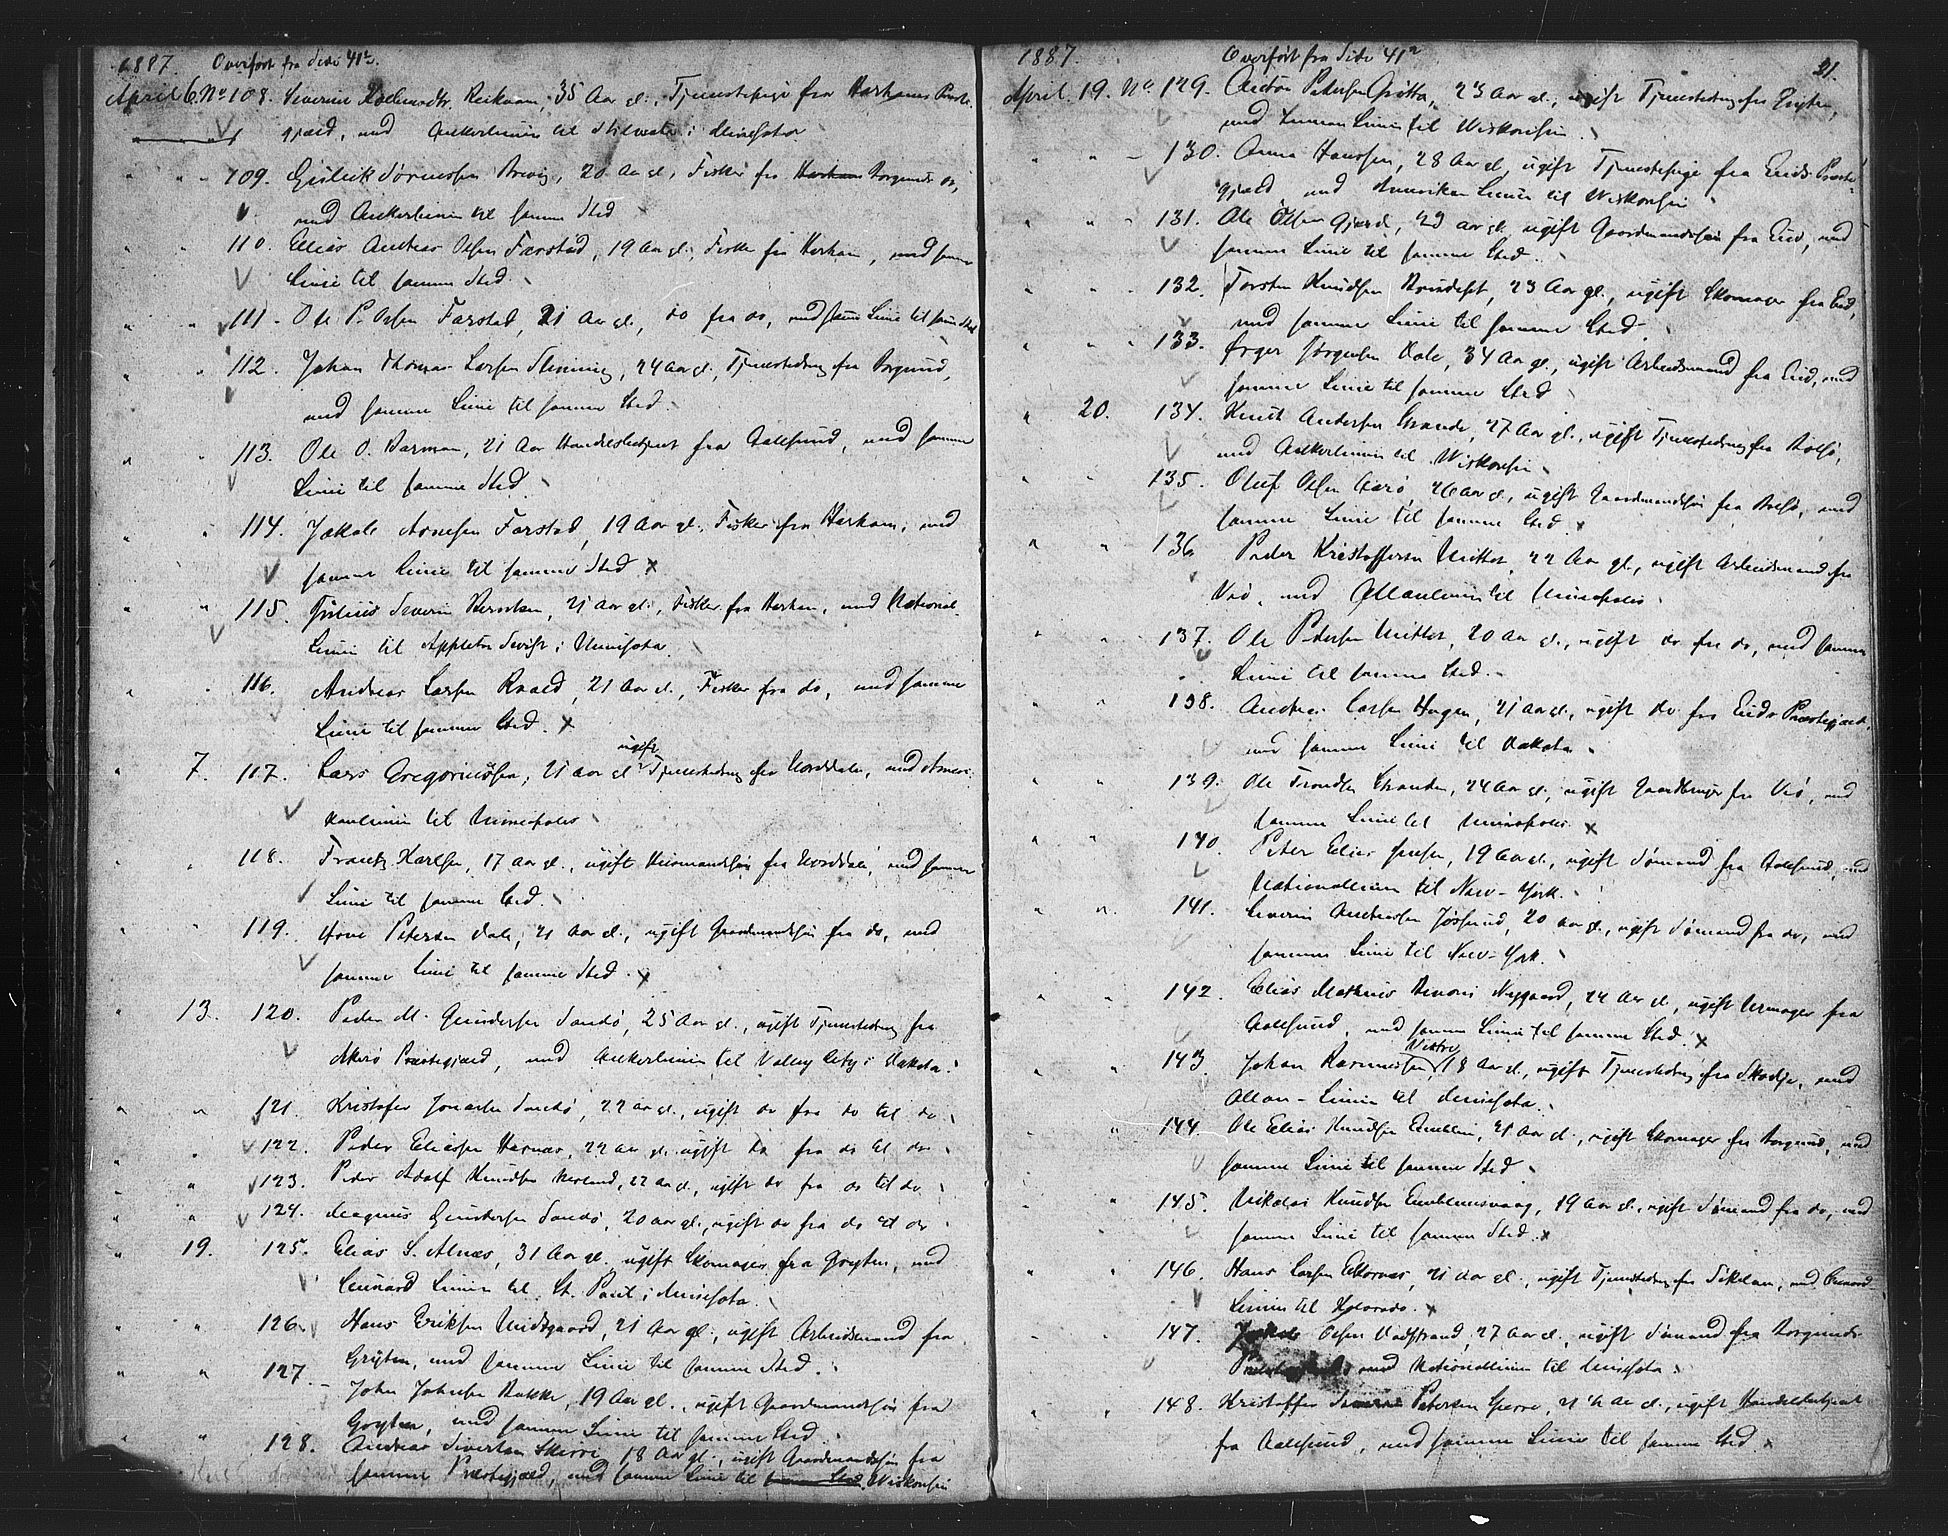 1887. Overført fra Side 41².
April 6. No 108. Severine Reiknæs, 35 Aar gl., Tjenestepige fra Harhams Præste-
gjæld, med Ankerlinien til Stilwater i Minesota
" " " 109. Gjølick Sørensen Brevig, 20 Aar gl., Fisker fra Borgunds do,
med Ankerlinien til samme Sted
" " 110. Elias Andreas Olsen Farstad, 19 Aar gl., Fisker fra Harham, med samme
Linie til samme Sted.
" " 111. Ole P. Olsen Farstad, 21 Aar gl., do fra do, med samme Linie til samme Sted
" " 112. Johan Thomas Larsen Slinning, 24 Aar gl., Tjenestedreng fra Borgund,
med samme Linie til samme Sted.
" " 113. Ole O. Barman, 21 Aar Handelsbetjent fra Aalesund, med samme
Linie til samme Sted.
" " 114. Jakob Arnesen Farstad, 19 Aar gl., Fisker fra Harham, med
samme Linie til samme Sted x
" " 115. Julius Severin Berntsen, 21 Aar gl., Fisker fra Harham, med National-
Linie til Appleton Swift i Minnesota
" " 116. Andreas Larsen Roald, 21 Aar gl., Fisker fra do, med samme
Linie til samme Sted. x
" 7. 117. Lars Gregoriussen, 21 Aar gl ugift Tjenestedreng fra Norddalen, med Ameri-
kanlinien til Minneapolis
" " 118. Frantz Karlsen, 17 Aar gl., ugift Husmandssøn fra Norddalen, med samme
Linie til samme Sted.
" " 119. Hove Petersen Dale, 21 Aar gl., ugift Gaardmandssøn fra do, med
samme Linie til samme Sted. x
" 13. 120. Peder M. Gundersen Sandø, 25 Aar gl., ugift Tjenestedreng fra
Akerø Præstegjæld, med Ankerlinien til Valley City i Dakota.
" " 121. Kristofer Jonassen Sandø, 22 Aar gl., ugift do fra do til do
" " 122. Peder Eliassen Harnæs, 22 Aar gl. ugift do fra do til do
" " 123. Peder Adolf Knudsen Nerland, 22 Aar gl., ugift do fra do til do
" " 124. Magnus Gundersen Sandø, 20 Aar gl., ugift do fra do til do
" 19. 125. Elias S. Alnæs, 31 Aar gl. ugift Skomager fra Grytten, med
Cunard Linien til St. Paul i Minesota.
" " 126. Hans Eriksen Unhjem, 21 Aar gl., ugift Arbeidsmand fra
Grytten, med samme Linie til samme Sted.
" " 127. John Johnsen Bakke, 19 Aar gl., ugift Gaardmandssøn fra
Grytten, med samme Linie til samme Sted.
" " 128. Andreas Sivertsen Skorri 18 Aar gl., ugift Gaardmandssøn fra
samme Præstegjæld, med samme Linie til samme Sted. Wiskonsin
1887. Overført fra Side 41² 31.
April. 19. No. 129. Anton Petersen Gritta, 23 Aar gl., ugift Tjenestedreng fra Grytten,
med Inman Linie til Wiskonsin.
" " 130. Anna Hanssen, 28 Aar gl., ugift Tjenestepige fra Eids Præste-
gjæld med Amerikan Linie til Wiskonsin
" " 131. Ole Olsen Gjerde, 23 Aar gl. ugift Gaardmandssøn fra Eid, med
samme Linie til samme Sted.
" " 132. Torsten Knudsen, 23 Aar gl., ugift Skomager fra Eid,
med samme Linie til samme Sted
" " 133. Ørger Jørgensen Dale, 34 Aar gl., ugift Arbeidsmand fra Eid, med
samme Linie til samme Sted
" 20. 134. Knut Andersen Grande, 27 Aar gl., ugift Tjenestedreng fra Bolsø,
med Ankerlinien til Wiskonsin
" " 135. Oluf Olsen Aarø, 26 Aar gl., ugift Gaardmandssøn fra Bolsø, med
samme Linie til samme Sted x
" " 136. Peder Kristoffersen Mittet, 22 Aar gl., ugift Arbeidsmand fra
Veø, med Allanlinien til Minneapolis
" " 137. Ole Petersen Mittet, 20 Aar gl., ugift do fra do, med samme
Linie til samme Sted.
" " 138. Andreas Larsen Hagen, 21 Aar gl., ugift do fra Eids Præstegjæld,
med samme Linie til Dakota
" " 139. Ole Trondsen Stranden, 24 Aar gl., ugift Gaardbruger fra Veø, med
samme Linie til Minneapolis x
" " 140. Peter Elias Jensen, 19 Aar gl., ugift Sømand fra Aalesund, med
Nationallinien til New-York.
" " 141. Severin Andreassen Jøssund, 20 Aar gl., ugift Sømand fra do, med
samme Linie til New-York.
" " 142. Elias Mathias Benoni Nygaard, 22 Aar gl., ugift Urmager fra
Aalesund, med samme Linie til samme Sted. x
" " 143. Johan Rasmussen Vestre, 18 Aar gl., ugift Tjenestedreng fra Skodje, med
Allan-Linie til Minesota.
" " 144. Ole Elias Knudsen Emblem, 21 Aar gl., ugift Skomager fra Borgund, med
samme Linie til samme Sted
" " 145. Nikolai Knudsen Emblemsvaag, 19 Aar gl., ugift Sømand fra do, med
samme Linie til samme Sted. x
" " 146. Hans Larsen Ekornæs, 21 Aar gl., ugift Tjenestedreng fra Søkelven, med Cunard
Linien til Kolorado. x
" " 147. Jakob Olsen Vadstrand, 27 Aar gl., ugift Sømand fra Borgunds
Præstegjæld med Nationallinien til Minesota
" " 148. Kristoffer Petersen Gjerre, 21 ½ Aar gl., ugift Handelsbetjent
fra Aalesund, med samme Linie til samme Sted. x